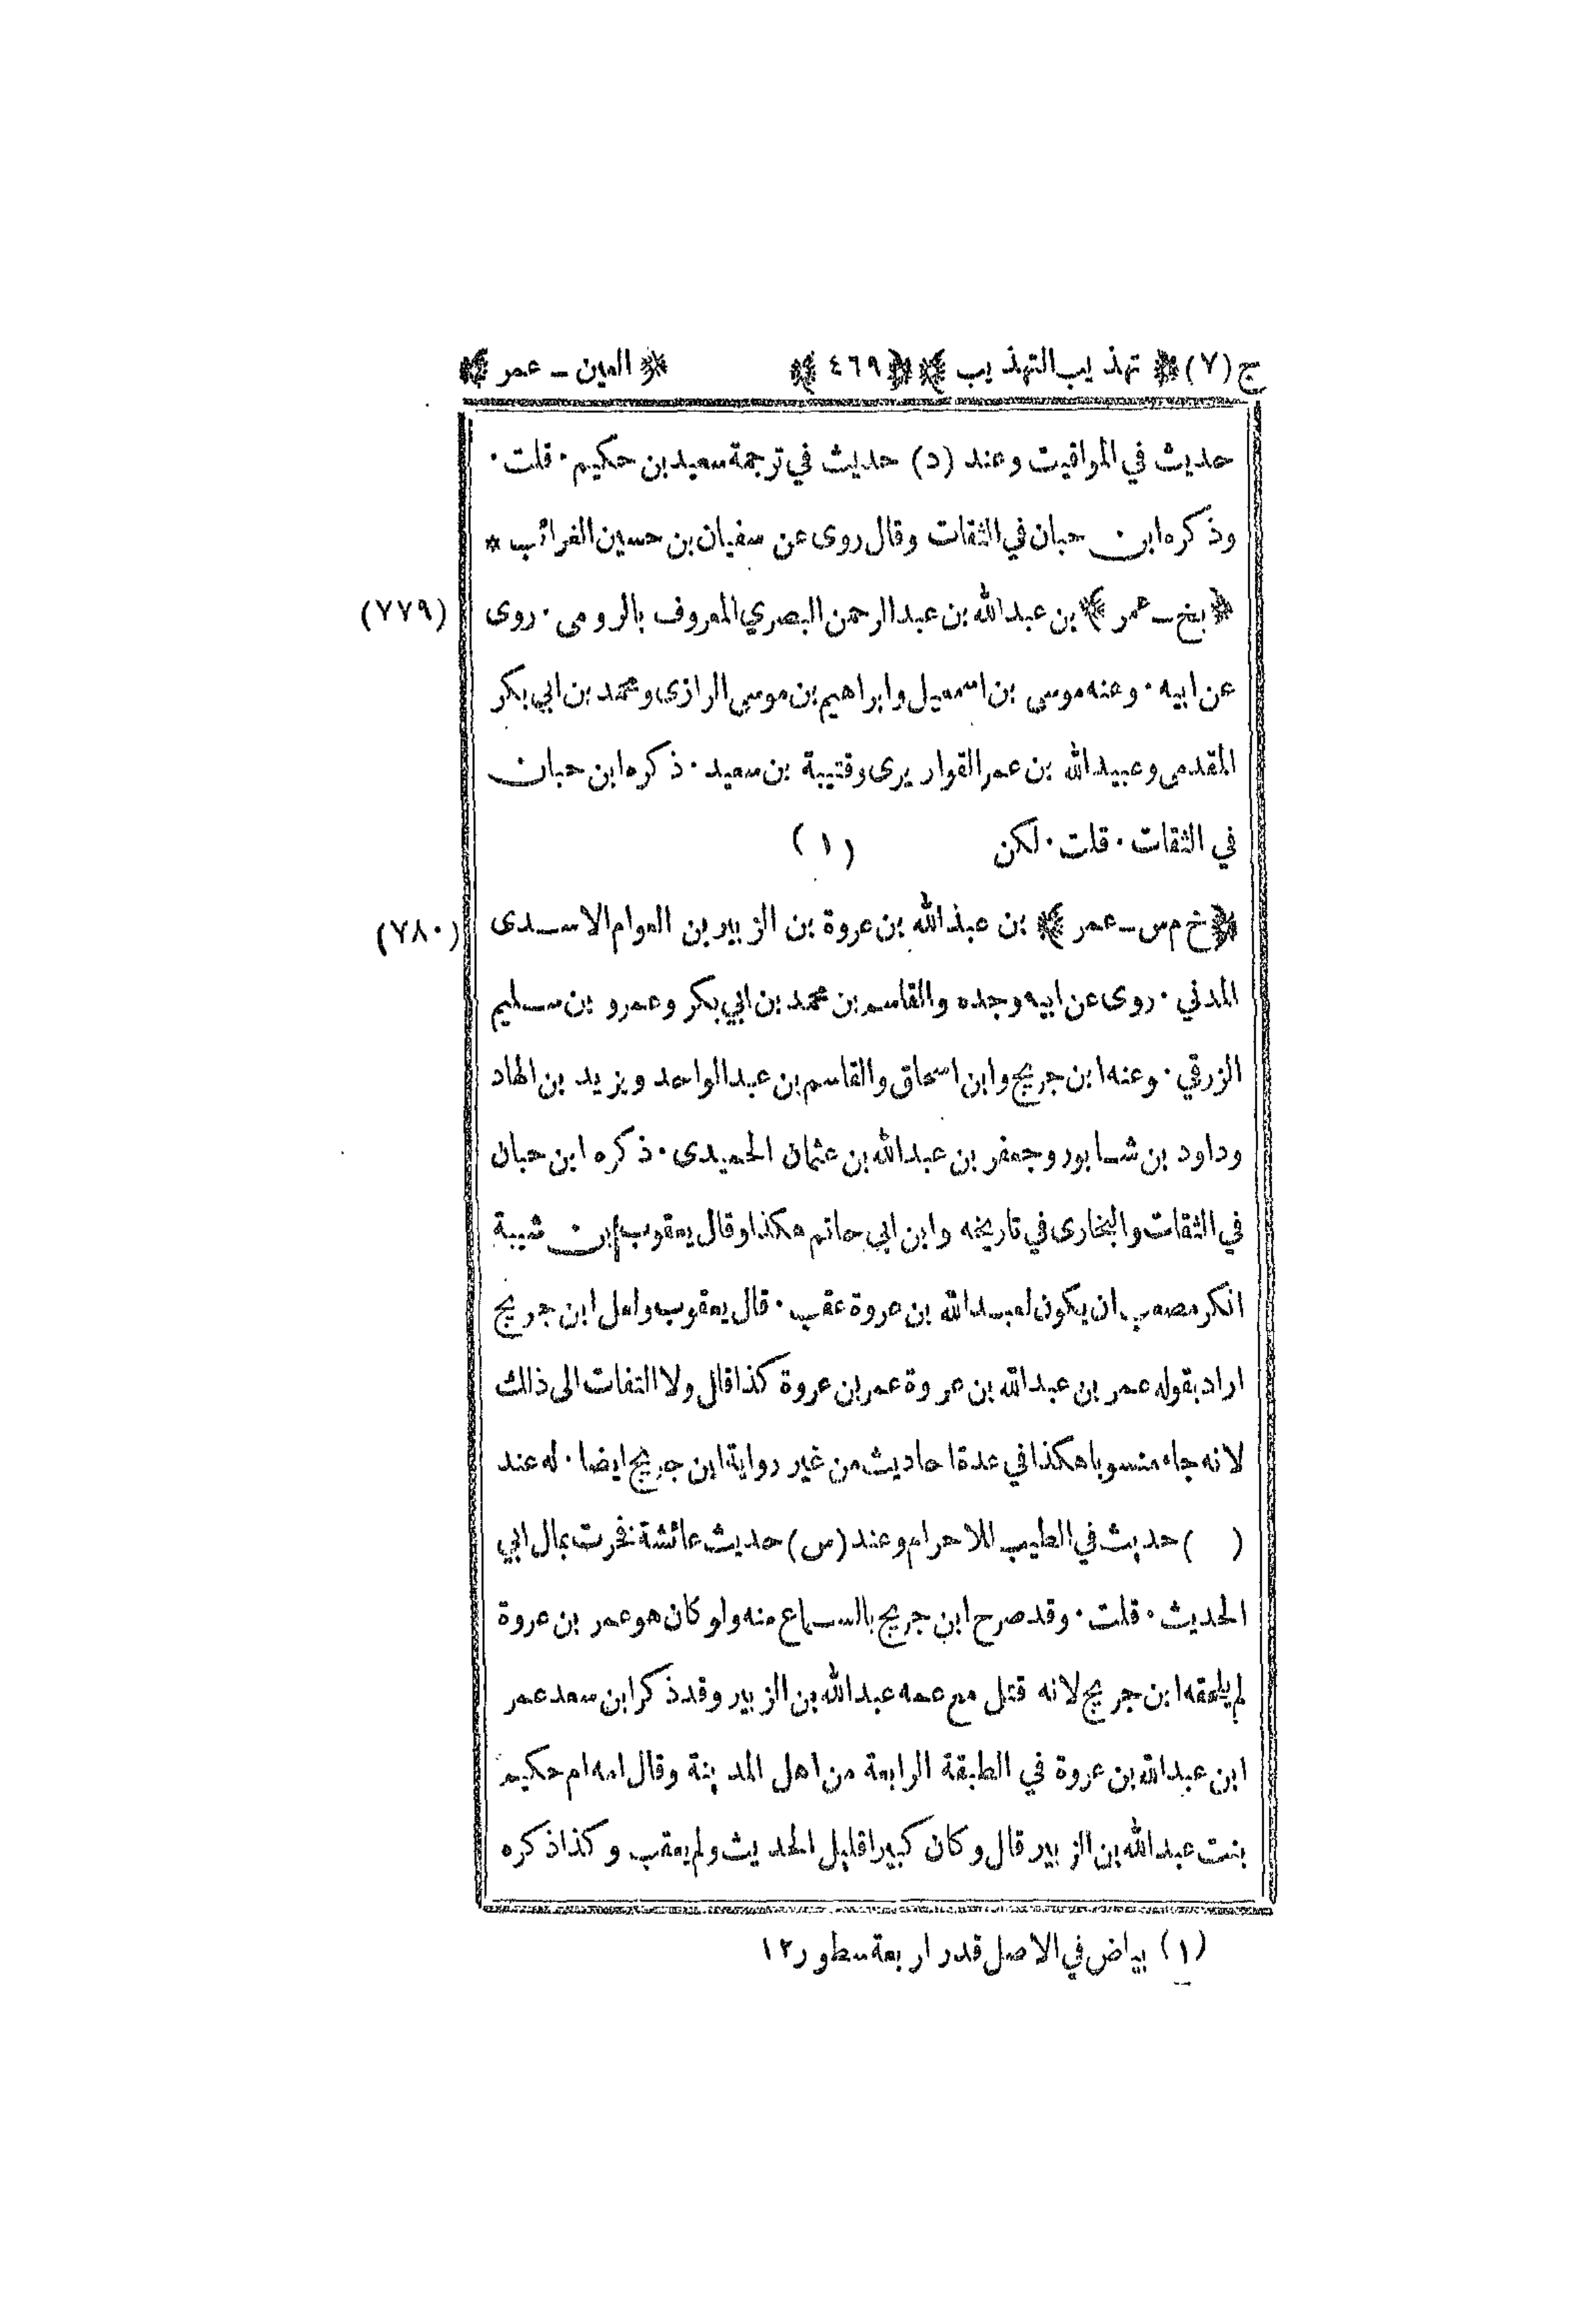 ج (٧) ﴿ تهذيب التهذيب ﴾ ﴿ ٤٦٩ ﴾ ﴿ العين ـ عمر ﴾
حديث في المواقيت وعند (د) حديث في ترجمة سعيد بن حكيم · قلت ·
وذكره ابن حبان في الثقات وقال روى عن سفيان بن حسين الغرائب *
﴿ بخ ـ عمر ﴾ بن عبدالله بن عبدالرحمن البصري المعروف بالرومى · روى (٧٧٩)
عن ابيه · وعنه موسى بن اسمعيل وابراهيم بن موسى الرازى ومحمد بن ابي بكر
المقدمى وعبيدالله بن عمر القواريرى وقتيبة بن سعيد · ذكره ابن حبان
في الثقات · قلت · لكن (١)
﴿ خ م س ـ عمر ﴾ بن عبدالله بن عروة بن الزبير بن العوام الاسدى (٧٨٠)
المدني · روى عن ابيه وجده والقاسم بن محمد بن ابي بكر وعمرو بن سليم
الزرقي · وعنه ابن جريج وابن اسحاق والقاسم بن عبدالواحد ويزيد بن الهاد
وداود بن شابور وجعفر بن عبدالله بن عثمان الحميدى · ذكره ابن حبان
في الثقات والبخارى في تاريخه وابن ابي حاتم هكذا وقال يعقوب بن شيبة
انكر مصعب ان يكون لعبدالله بن عروة عقب · قال يعقوب ولعل ابن جريج
اراد بقوله عمر بن عبدالله بن عروة عمر بن عروة كذا قال ولا التفات الى ذالك
لانه جاء منسوبا هكذا في عدة احاديث من غير رواية ابن جريج ايضا · له عند
( ) حديث في الطيب للاحرام وعند (س) حديث عائشة فخرت بمال ابي
الحديث · قلت · وقد صرح ابن جريج بالسماع منه ولو كان هو عمر بن عروة
لم يلحقه ابن جريج لانه قتل مع عمه عبدالله بن الزبير وقد ذكر ابن سعد عمر
ابن عبدالله بن عروة في الطبقة الرابعة من اهل المدينة وقال امه ام حكيم
بنت عبدالله بن الزبير قال وكان كبيرا قليل الحديث ولم يعقب وكذا ذكره
(١) بياض في الاصل قدر اربعة سطور ١٢